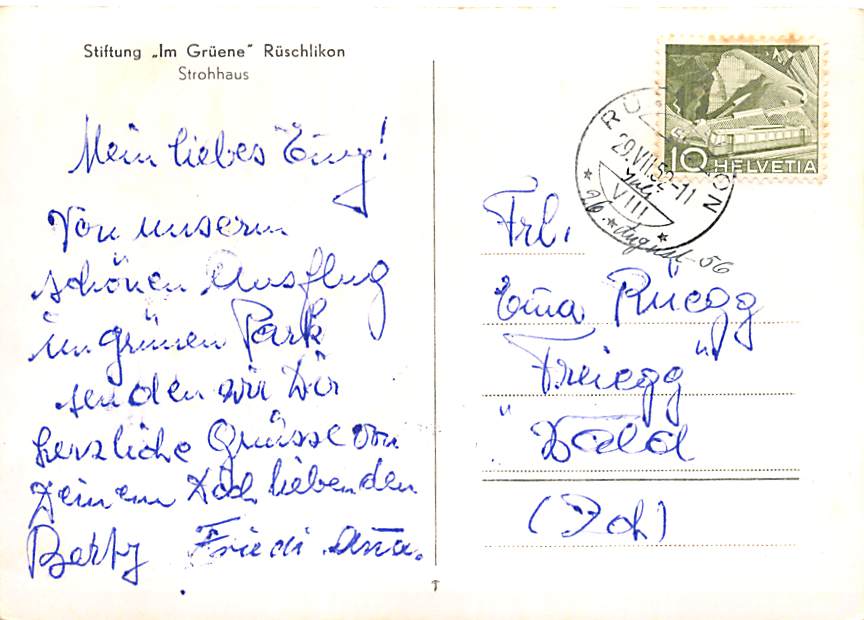 Stiftung „Im Grüene" Rüschlikon
Strohhaus
Mein liebes
Von unserm
schönen Ausflug
im grünen Park
senden wir Dir
herzliche Grüsse von
Deinem Dich liebenden
Berty Friedi Anna.
10 HELVETIA
29.VII.52-11
VIII
26. August 56
Frl.
Ruegg
"Freiegg"
Wald
(Zch)